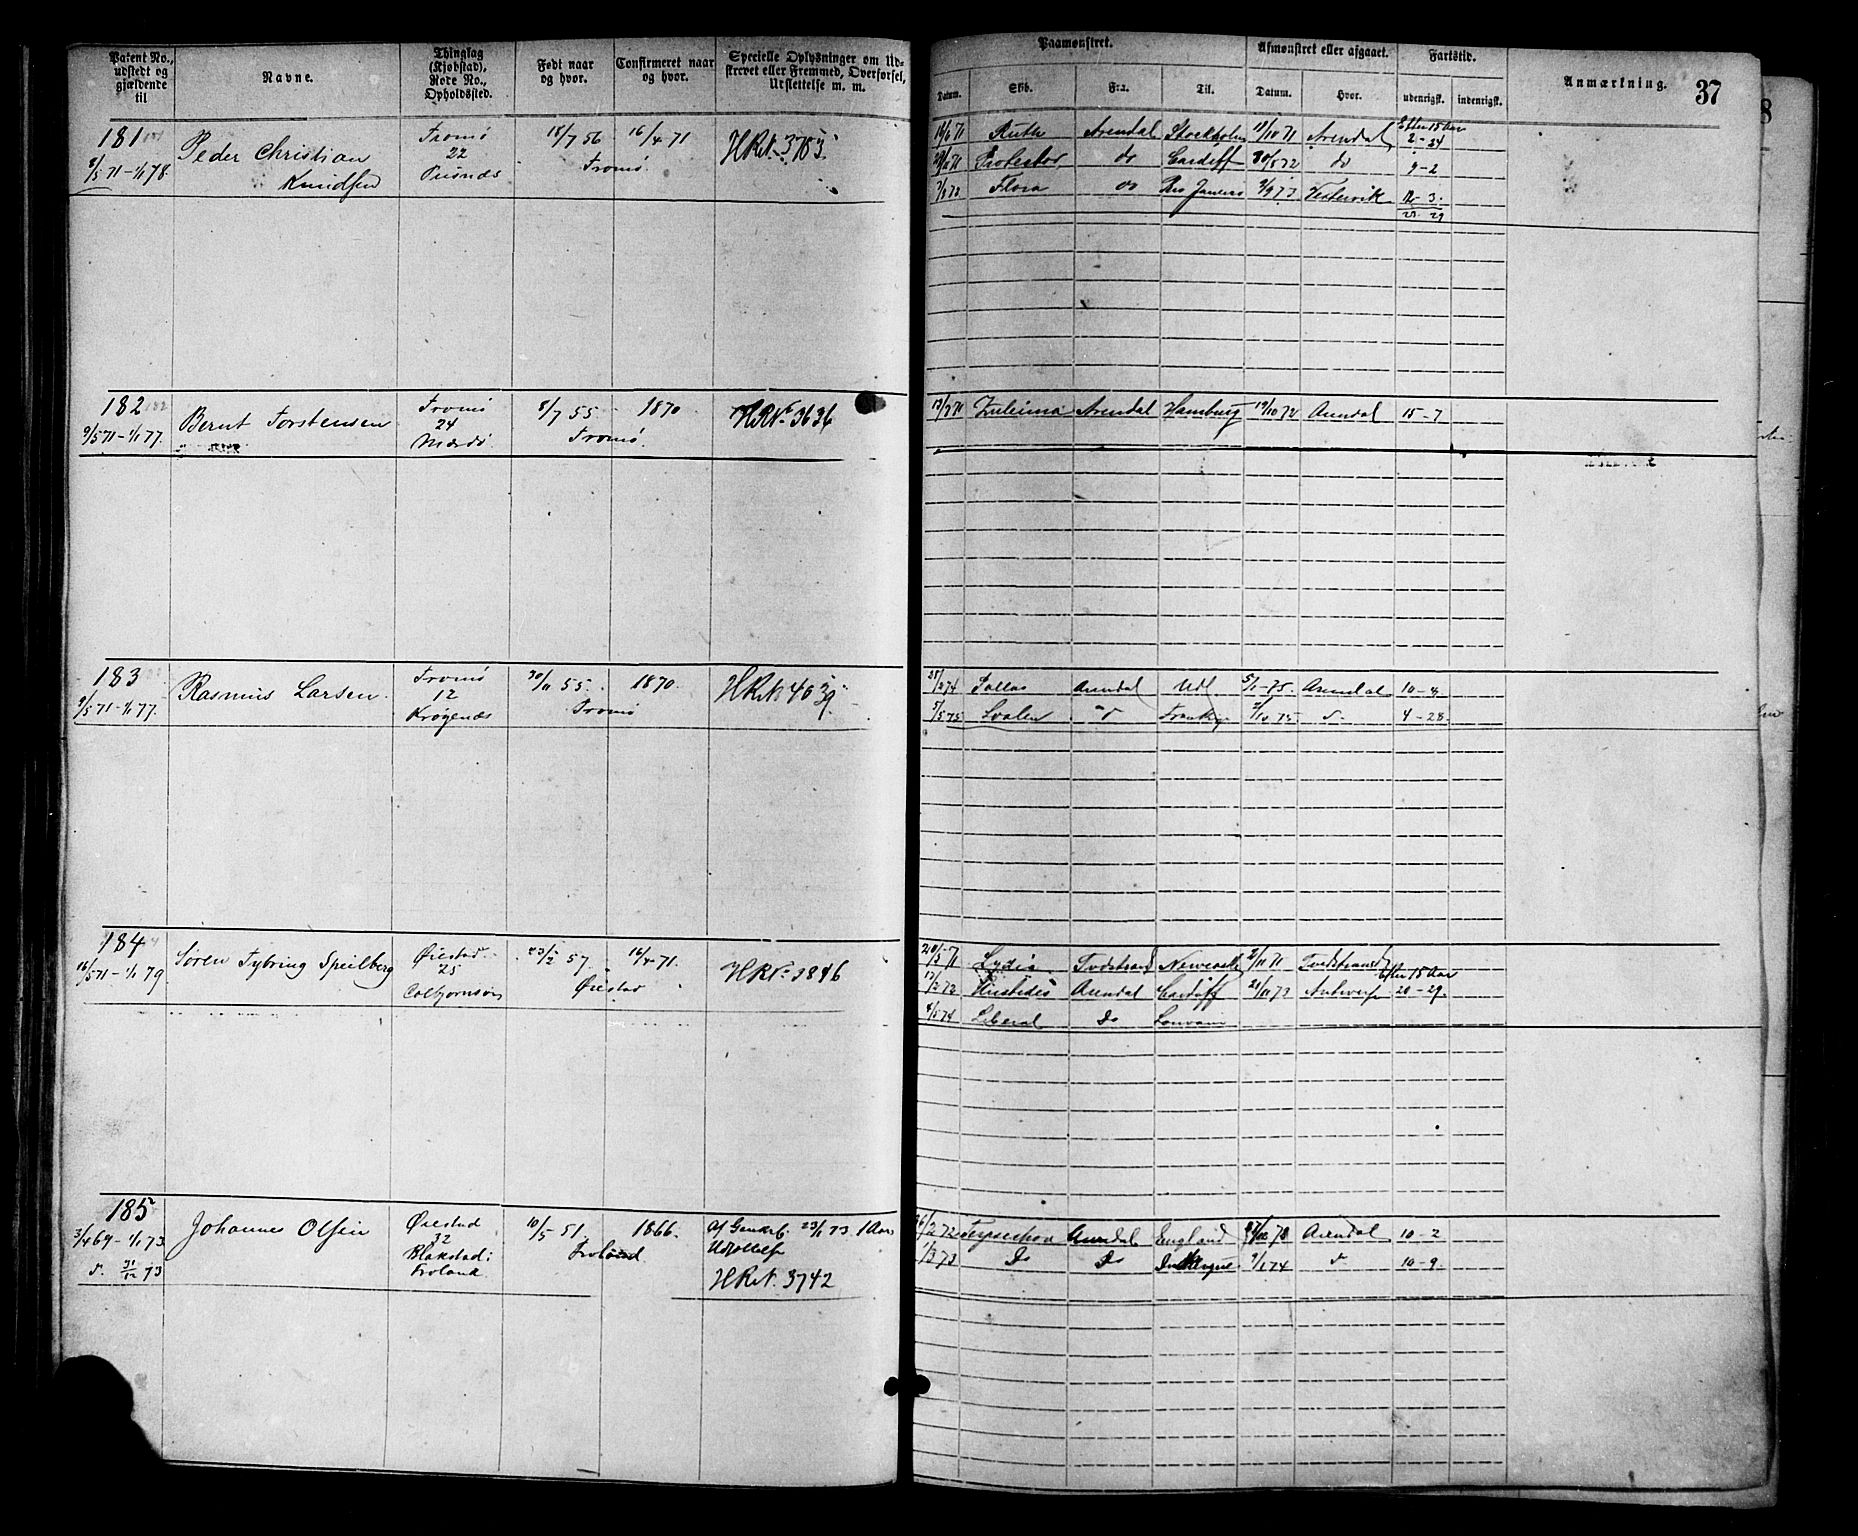 Patent No., udstedt og gjældende til
Navne.
Thinglag (Kjøbstad), Rode No., Opholdssted.
Født naar og hvor.
Confirmeret naar og hvor.
Specielle Oplysninger om Udskrevet eller Fremmed, Overførsel, Udslettelse m. m.
Paamønstret.
Datum.
Skib.
Fra.
Til.
Afmønstret eller afgaaet.
Datum.
Hvor.
Fartstid.
udenrigst.
indenrigst.
Anmærkning.
37
181
8/5 71 - 1/1 78
Peder Christian
Knudsen
Tromø
22
Pusnæs
18/7 56
16/4 71
Tromø.
HRNo 3783
16/6 71 Ruth Arendal Stockholm 18/10 71 Arendal
Efter 15 Aar
2 - 24
Protector do Cardiff 30/5 72 do 9 - 2
Flora do Rio Janeiro 2/9 73 Vestervik 12 3.
182
9/5 71 - 1/1 77.
Bernt Torstensen
Tromø
24
Mærdø
8/7 55
1870
Tromø.
HRNo 3636
Zuleima Arendal Hamburg 19/10 72 Arendal 15 - 7
183
9/5 71 - 1/1 77.
Rasmus Larsen
Tromø
12
Krøgenæs
30/11 55.
1870.
Tromø
HRNo 4039
25/2 74 Pallas Arendal Udl 5/1 - 75. Arendal 10 - 8
5/5 75 Svalen 2/10 75 4 - 28.
184
16/5 71 - 1/1 79
Søren Tybring Speilberg
Øiestad
25
Colbjornsøn
23/2 57.
16/4 71.
Øiestad
HRNo 3846
20/5 71 Lydia Tvedstrand Newcastle 2/11 71 Tvedstrand
Efter 15 Aar
Aristides Arendal Cardiff 21/11 73 Antwerp 20 - 29.
4/5 74 Liberal Do
185
3/4 69 - 1/1 73
31/12 73
Johannes Olsen
Øiestad
32
Blakstad i
Froland
10/5 51.
1866.
Froland
23/1 73 1 Aar
Udsættelse
HRNo 3742
26/2 72 Terpsichore Arendal England Arendal 10 - 2
1/3 73 Do Do 9/1 74 10 - 9.